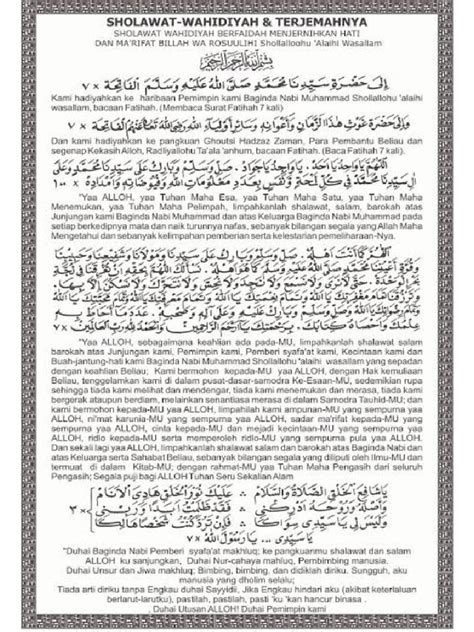 SHOLAWAT-WAHIDIYAH & TERJEMAHNYA
SHOLAWAT WAHIDIYAH BERFAIDAH MENJERNIHKAN HATI
DAN MA'RIFAT BILLAH WA ROSUULIHI Shollalloohu 'Alaihi Wasallam
بسم الله الرحمن الرحيم
إلى حضرة سيدنا محمد صلى الله عليه وسلم الفاتحة ٧×
Kami hadiyahkan ke haribaan Pemimpin kami Baginda Nabi Muhammad Shollallohu 'alaihi
wasallam, bacaan Fatihah. (Membaca Surat Fatihah 7 kali)
وإلى حضرة غوث هذا الزمان وأعوانه وسائر أولياء الله رضي الله تعالى عنهم الفاتحة ٧×
Dan kami hadiyahkan ke pangkuan Ghoutsi Hadzaz Zaman, Para Pembantu Beliau dan
segenap Kekasih Alloh, Radliyallohu Ta'ala 'anhum, bacaan Fatihah. (Baca Fatihah 7 kali).
اللهم يا واحد يا أحد، يا واجد يا جواد، صل وسلم وبارك على سيدنا محمد وعلى
آل سيدنا محمد في كل لمحة ونفس بعدد معلومات الله وفيوضاته وأمداده ١٠٠×
"Yaa ALLOH, yaa Tuhan Maha Esa, yaa Tuhan Maha Satu, yaa Tuhan Maha
Menemukan, yaa Tuhan Maha Pelimpah, limpahkanlah shalawat, salam, barokah atas
Junjungan kami Baginda Nabi Muhammad dan atas Keluarga Baginda Nabi Muhammad pada
setiap berkedipnya mata dan naik turunnya nafas, sebanyak bilangan segala yang Allah Maha
Mengetahui dan sebanyak kelimpahan pemberian serta kelestarian pemeliharaan-Nya.
اللهم كما أنت أهله، صل وسلم وبارك على سيدنا ومولانا وشفيعنا وحبيبنا
وقرة أعيننا محمد صلى الله عليه وسلم كما هو أهله
"Yaa ALLOH, sebagaimana keahlian ada pada-MU, limpahkanlah shalawat salam
barokah atas Junjungan kami, Pemimpin kami, Pemberi syafa'at kami, Kecintaan kami dan
Buah-jantung-hati kami Baginda Nabi Muhammad Shollallohu 'alaihi wasallam yang sepadan
dengan keahlian Beliau; Kami bermohon kepada-MU yaa ALLOH, dengan Hak kemuliaan
Beliau, tenggelamkan kami di dalam pusat-dasar-samodra Ke-Esaan-MU, sedemikian rupa
sehingga tiada kami melihat dan mendengar, tiada kami menemukan dan merasa, tiada kami
bergerak ataupun berdiam, melainkan senantiasa merasa di dalam Samodra Tauhid-MU; dan
kami bermohon kepada-MU yaa ALLOH, limpahilah kami ampunan-MU yang sempurna yaa
ALLOH, ni'mat karunia-MU yang sempurna yaa ALLOH, sadar ma'rifat kepada-MU yang
sempurna yaa ALLOH, cinta kepada-MU dan mejadi kecintaan-MU yang sempurna yaa
ALLOH, ridlo kepada-MU serta memperoleh ridlo-MU yang sempurna pula yaa ALLOH.
Dan sekali lagi yaa ALLOH, limpahkanlah shalawat salam dan barokah atas Baginda Nabi dan
atas Keluarga serta Sahabat Beliau, sebanyak bilangan segala yang diliputi oleh Ilmu-MU dan
termuat di dalam Kitab-MU; dengan rahmat-MU yaa Tuhan Maha Pengasih dari seluruh
Pengasih; Segala puji bagi ALLOH Tuhan Seru Sekalian Alam
يا شافع الخلق الصلاة والسلام ۞ عليك نور الخلق هادي الأنام
وأصله وروحه أدركني ۞ فقد ظلمت أبدا وربني
وليس لي يا سيدي سواكا ۞ فإن ترد كنت شخصا هالكا
يا سيدي يا رسول الله ٧×
"Duhai Baginda Nabi Pemberi syafa'at makhluq; ke pangkuanmu shalawat dan salam
ALLOH ku sanjungkan, Duhai Nur-cahaya mahluq, Pembimbing manusia.
Duhai Unsur dan Jiwa makhluq; Bimbing, bimbing, dan didiklah diriku. Sungguh, aku
manusia yang dholim selalu;
Tiada arti diriku tanpa Engkau duhai Sayyidii, Jika Engkau hindari aku (akibat keterlaluan
berlarut-larutku), pastilah, pastilah pasti 'ku 'kan hancur binasa .
. Duhai Utusan ALLOH! Duhai Pemimpin kami